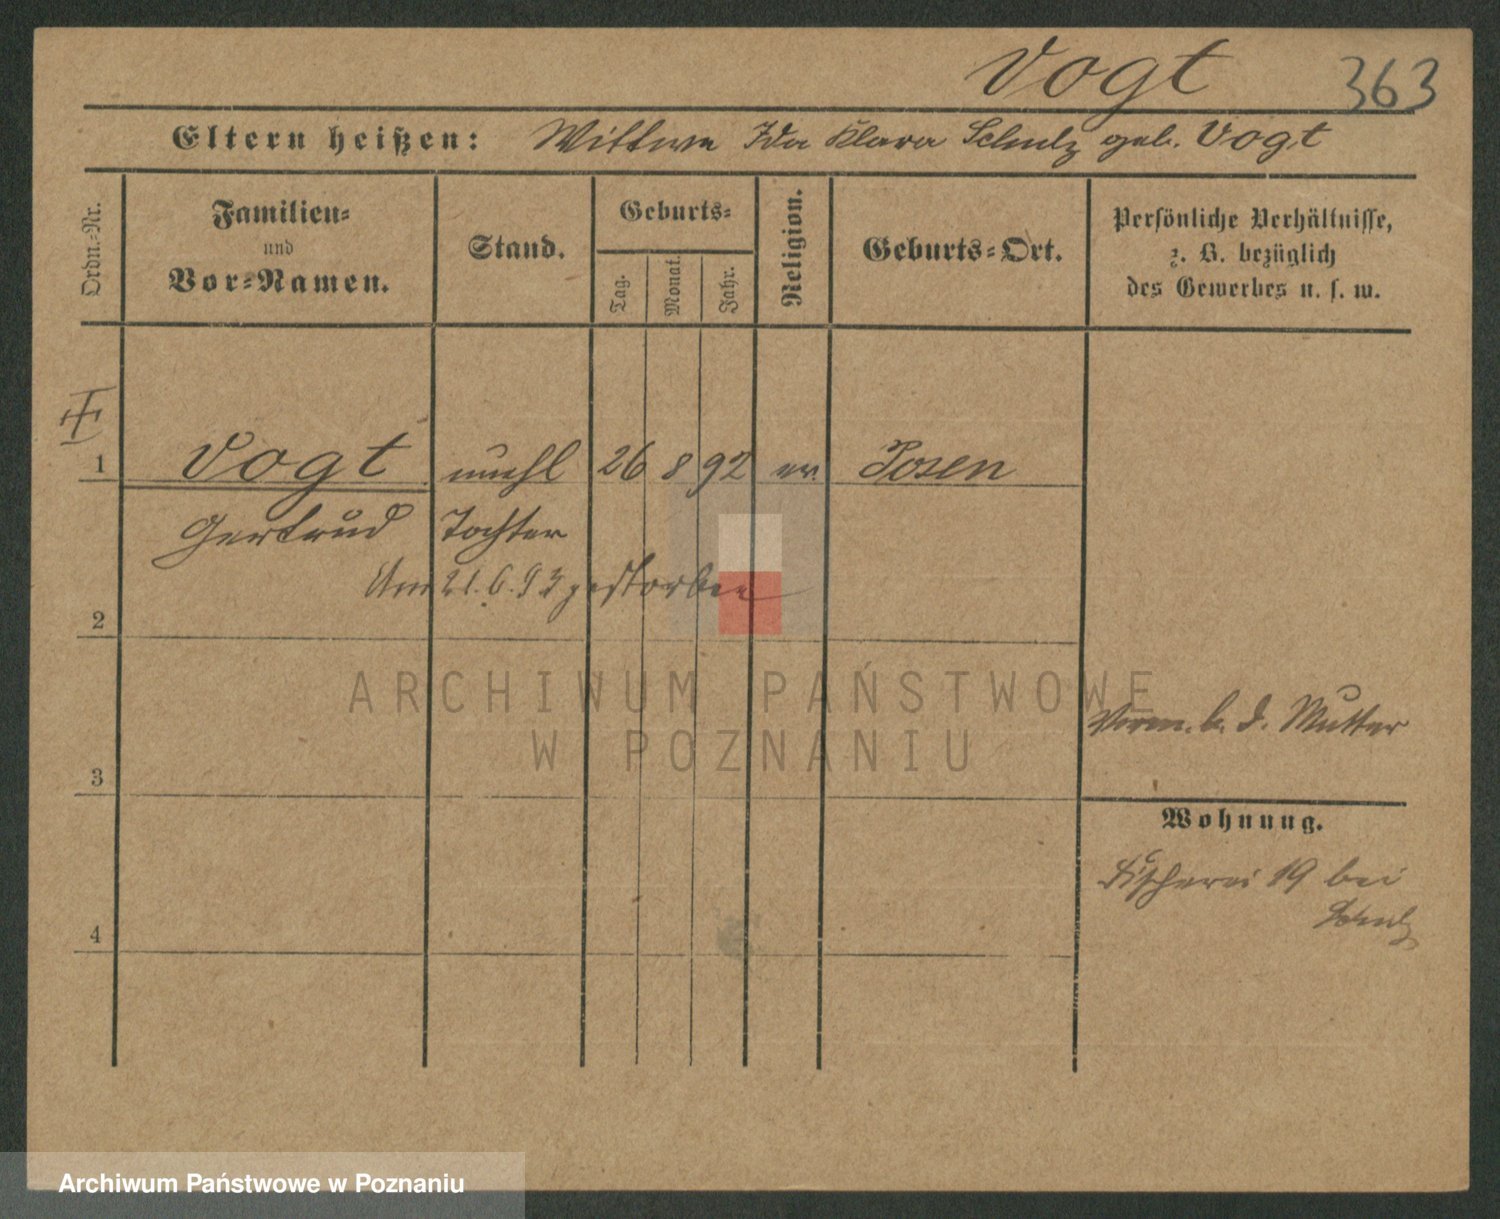 Vogt 363
Eltern heißen: Wittwe Ida Klara Schulz geb. Vogt
Ordn.-Nr.
Familien-
und
Vor-Namen.
Stand.
Geburts-
Tag.
Monat.
Jahr.
Religion.
Geburts-Ort.
Persönliche Verhältnisse,
z. B. bezüglich
des Gewerbes u. s. w.
1 Vogt unehl 26 8 92 ev. Posen
Gertrud Tochter
Am 21.6.93 gestorben
2
ARCHIWUM PAŃSTWOWE
W POZNANIU
Vorm. b. d. Mutter
3
Wohnung.
Fischerei 19 bei
Schulz
4
Archiwum Państwowe w Poznaniu